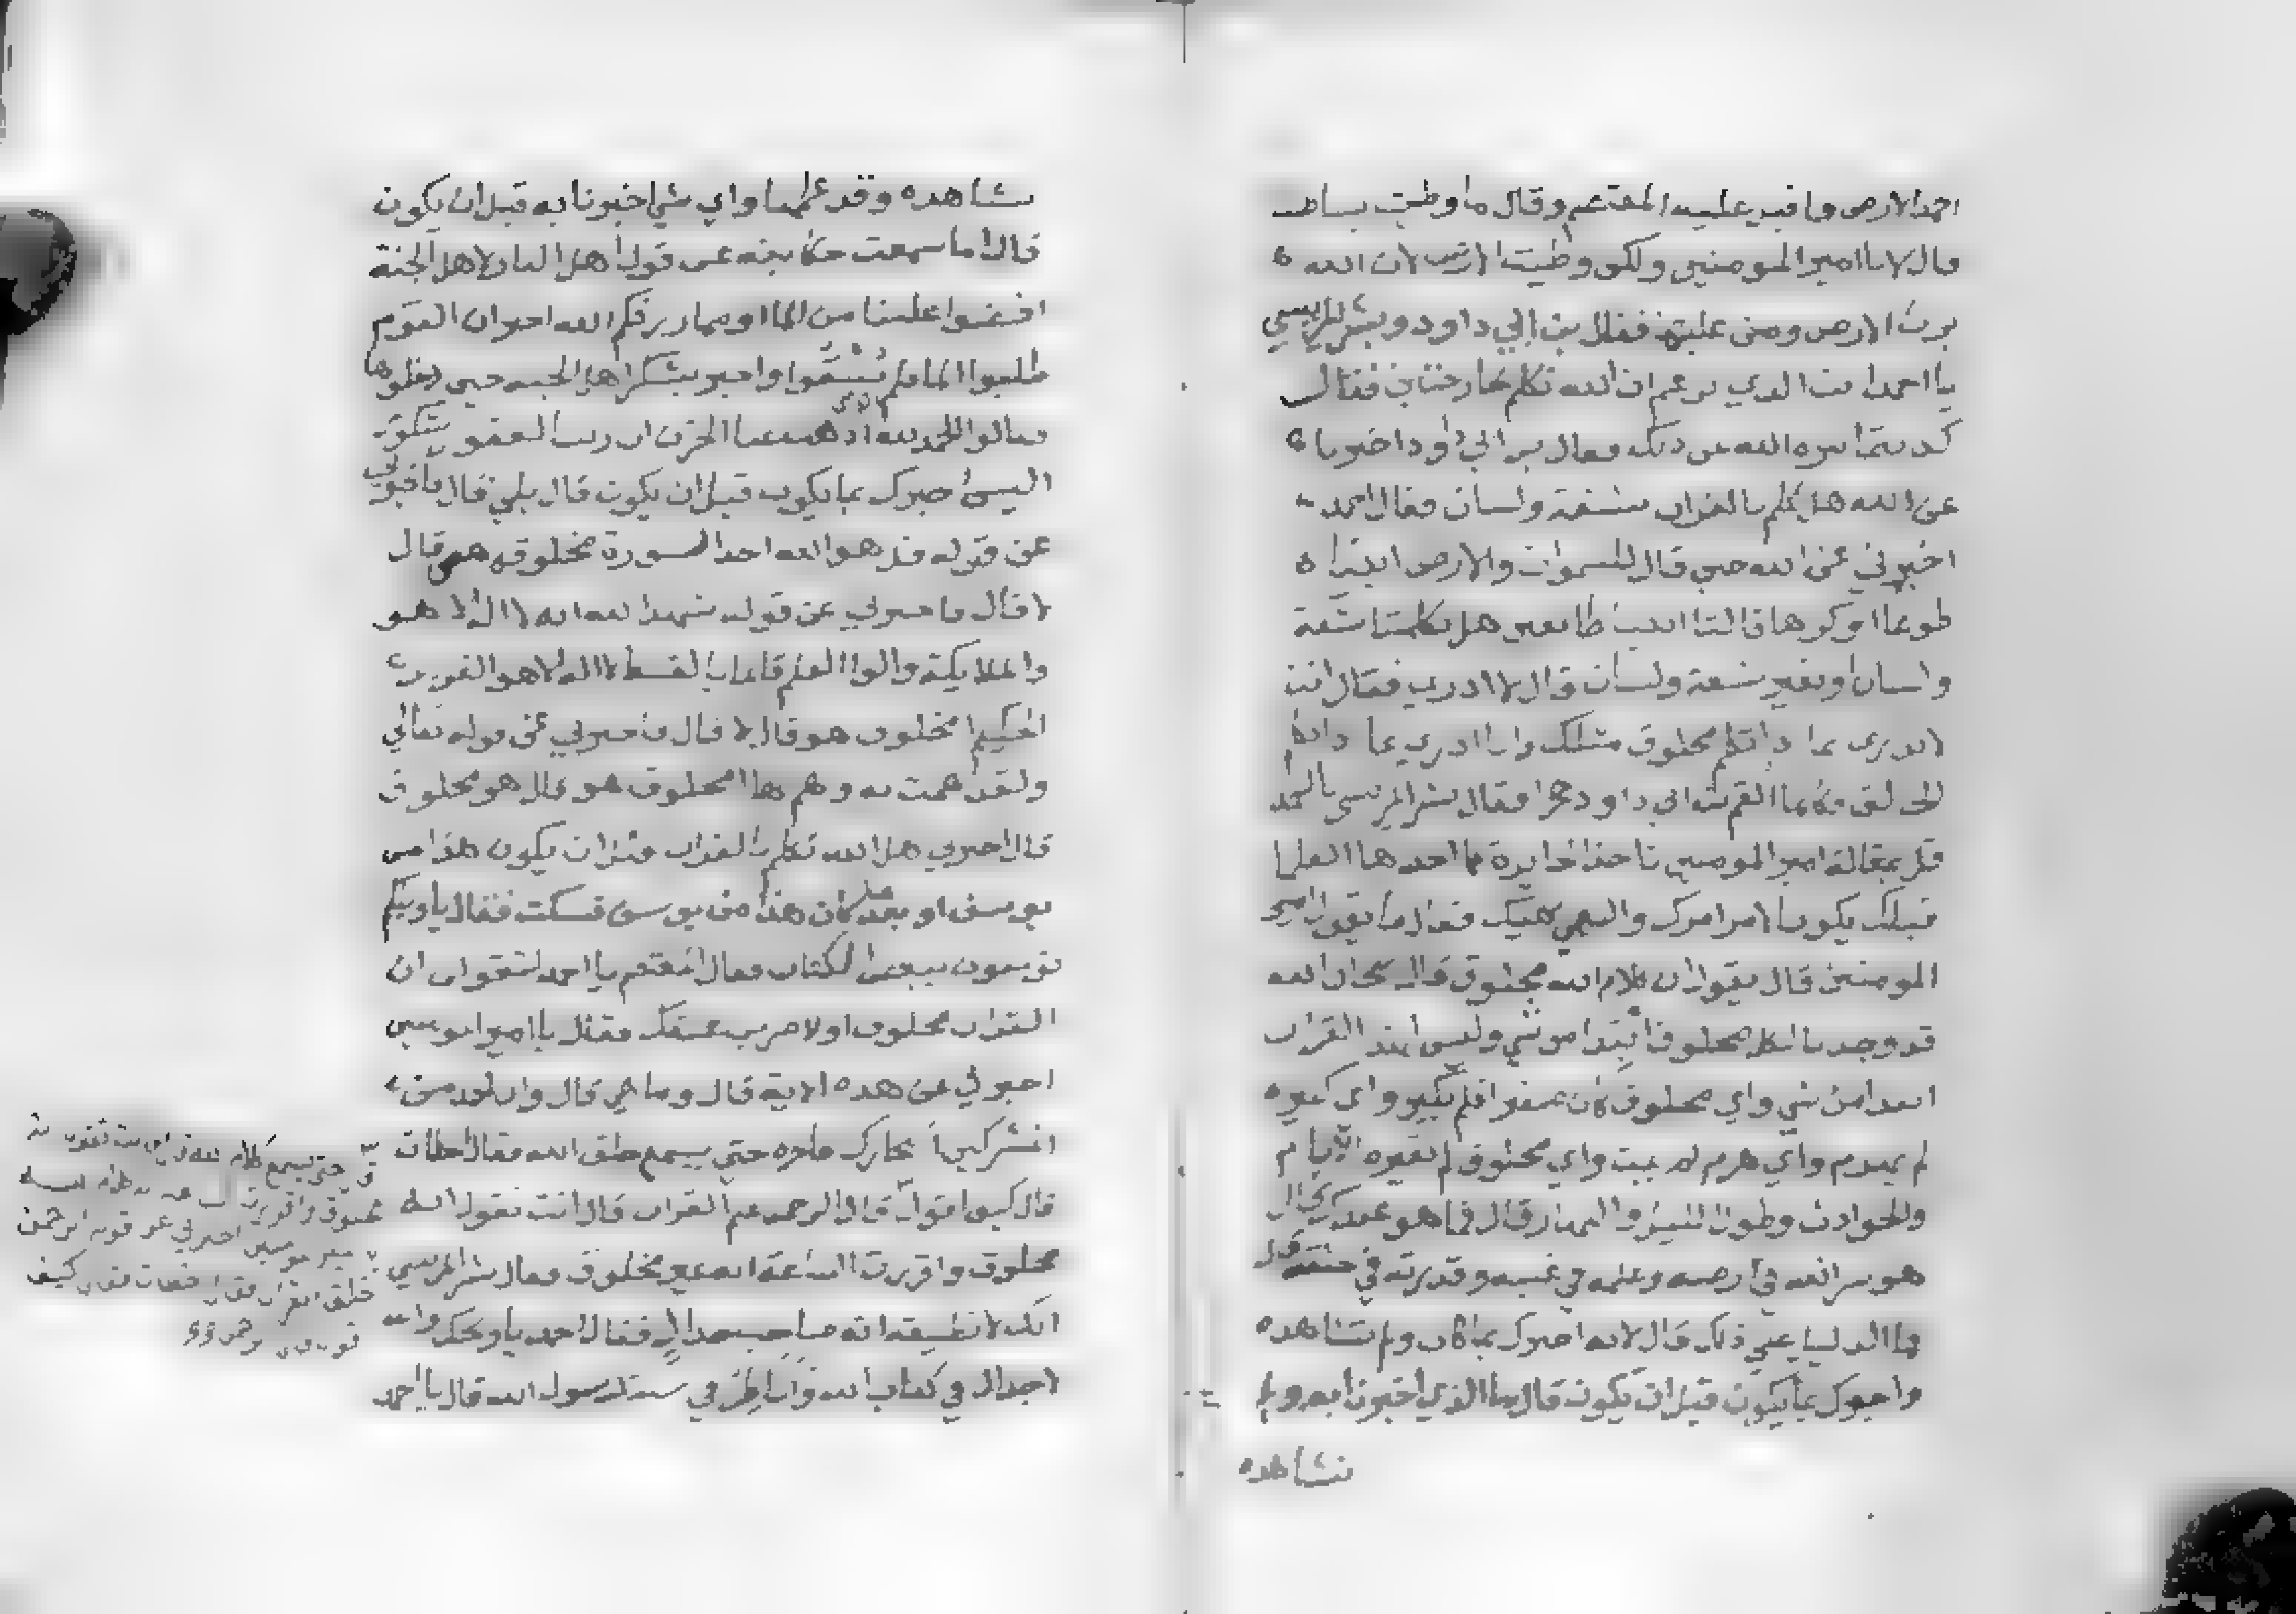 احمد الارض وما فيه عليه المعتصم وقال ما وطيت بساط
قال لا يا امير المومنين ولكن وطيت الارض لان الله
يرث الارض ومن عليها فقال بن ابي داود وبشر المريسي
يا احمد انت الذي تزعم ان الله تكلم فقال
الله عن ذلك فقال بن ابي داود اخبرنا
عن الله هل تكلم بالقران بشفة ولسان فقال احمد
اخبروني عن الله حين قال للسموات والارض ايتيا
طوعا او كرها قالتا اتينا طايعين هل تكلمتا بشفة
ولسان او بغير شفة ولسان قال لا ادري فقال انت
لا تدري بما ذا تكلم مخلوق مثلك وانا ادري بما ذا تكلم
الخالق فكانما القم بن ابي داود حجرا فقال بشر المريسي يا احمد
قل بمقالة امير المومنين تاخذ الجايزة كما اخذها العلما
قبلك يكون الامر امرك والنهي نهيك فقال ما يقول امير
المومنين قال يقول ان كلام الله مخلوق قال سبحان الله
قد وجدنا كل مخلوق ابتدا من شي وليس ابتدا القران
ابتدا من شي واي مخلوق كان صغيرا فلم يكبر واي كبير
لم يهرم واي هرم لم يمت واي مخلوق لم تغيره الايام
والحوادث وطول الليل والنهار قال فما هو عندك قال
هو سر الله في ارضه وعلمه في غيبه وقدرته في خلقه قال
وما الدليل على ذلك قال لانه اخبرك بما كان ولم تشاهده
واخبرك بما يكون قبل ان يكون قال وما الذي اخبرنا به ولم
نشاهده
نشاهده وقد علمنا واي شي اخبرنا به قبل ان يكون
قال اما سمعت حكايته عن قول اهل النار لاهل الجنة
افيضوا علينا من الما او مما رزقكم الله اخبر ان القوم
طلبوا الما فلم يسقوا واخبر بشكر اهل الجنة حين دخلوها
وقالوا الحمد لله الذي اذهب عنا الحزن ان ربنا لغفور شكور
اليس اخبرك بما يكون قبل ان يكون قال بلى قال فاخبرني
عن قوله قل هو الله احد السورة مخلوقه هي قال
لا قال فاخبرني عن قوله شهد الله انه لا اله الا هو
والملايكة والوا العلم قايما بالقسط لا اله الا هو العزيز
الحكيم امخلوق هو قال لا قال فاخبرني عن قوله تعالي
ولقد همت به وهم بها امخلوق هو قال هو مخلوق
قال اخبرني هل الله تكلم بالقران قبل ان يكون هذا من
يوسف او بعد كان هذا من يوسف فسكت فقال يا ويلكم
تومنون ببعض الكتاب فقال المعتصم يا احمد لتقولن ان
القران مخلوق او لاضربن عنقك فقال يا امير المومنين
اخبرني عن هذه الاية قال وما هي قال وان احد من
المشركين استجارك فاجره حتي يسمع خلق الله فقال اخطات
قال كيف اقول قال الرحمن علم القران قال انت تقول انه
مخلوق واقررت الساعة انه غير مخلوق فقال بشر المريسي
انك لا تطيقه انه صاحب جدال فقال احمد يا ويحك والله
لا جدال في كتاب الله ولا ناظر في سنة رسول الله قال يا احمد
قل حتي يسمع كلام الله قال انت تقول انه
مخلوق واقررت انه كلام الله
امير المومنين اخبرني عن قوله الرحمن
خلق القران فقال اخطات فقال كيف